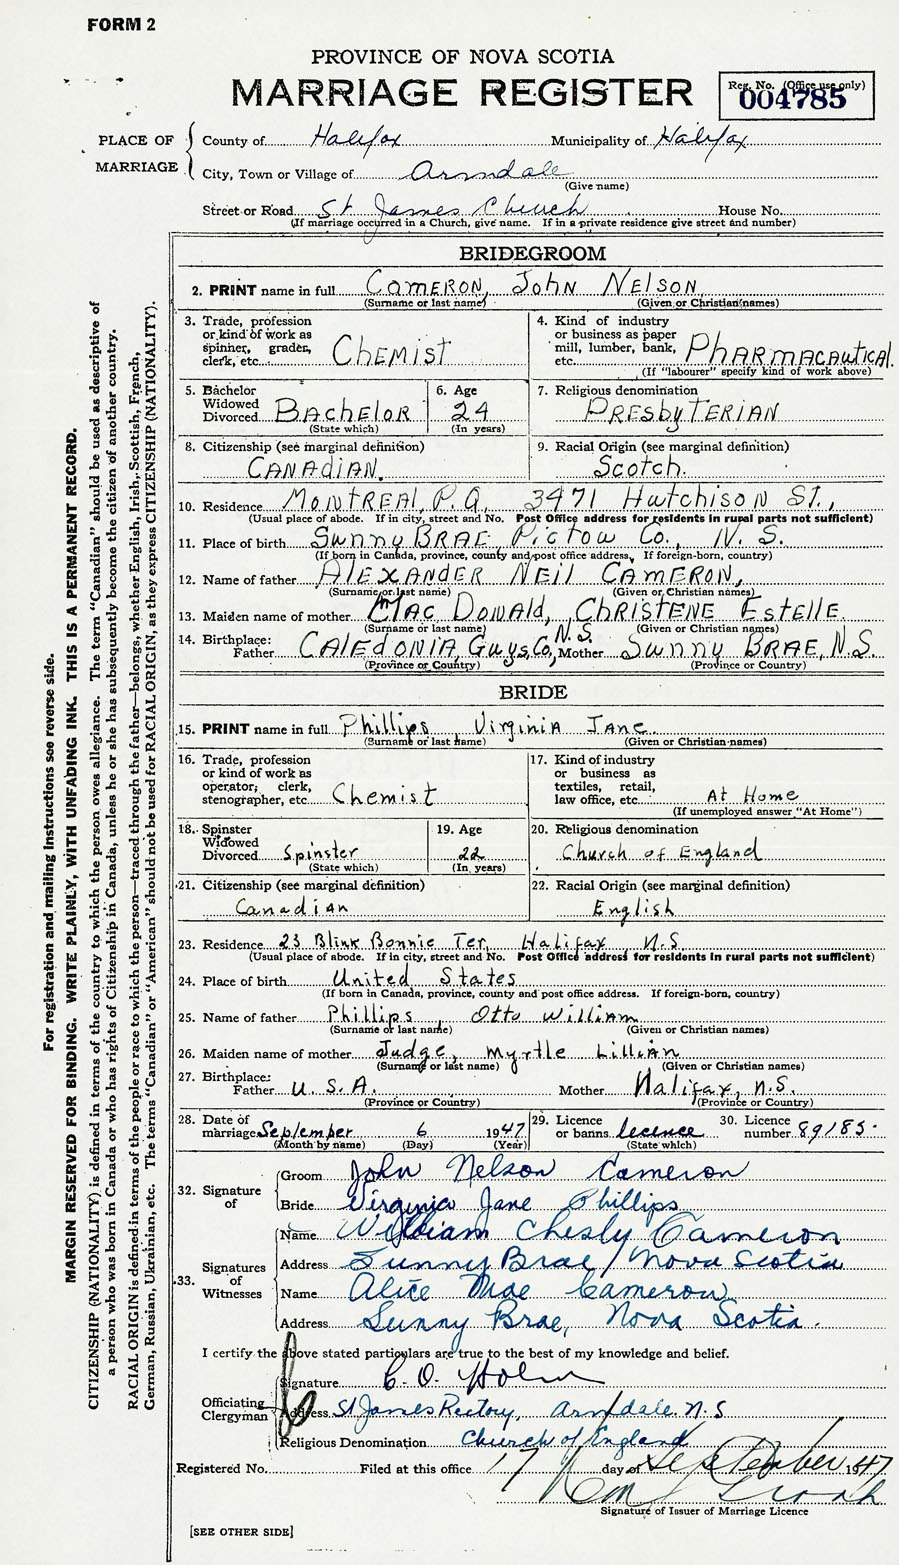 FORM 2
PROVINCE OF NOVA SCOTIA
MARRIAGE REGISTER
Reg. No. (Office use only)
004785
PLACE OF MARRIAGE
County of Halifax Municipality of Halifax
City, Town or Village of Armdale
(Give name)
Street or Road St James Church House No.
(If marriage occurred in a Church, give name. If in a private residence give street and number)
BRIDEGROOM
2. PRINT name in full CAMERON, JOHN NELSON
(Surname or last name) (Given or Christian names)
3. Trade, profession or kind of work as spinner, grader, clerk, etc. CHEMIST
4. Kind of industry or business as paper mill, lumber, bank, etc. PHARMACAUTICAL.
(If "labourer" specify kind of work above)
5. Bachelor Widowed Divorced BACHELOR
(State which)
6. Age 24
(In years)
7. Religious denomination
PRESBYTERIAN
8. Citizenship (see marginal definition)
CANADIAN.
9. Racial Origin (see marginal definition)
Scotch.
10. Residence MONTREAL, P.Q. 3471 Hutchison St.,
(Usual place of abode. If in city, street and No. Post Office address for residents in rural parts not sufficient)
11. Place of birth Sunny BRAE Pictow Co., N. S.
(If born in Canada, province, county and post office address. If foreign-born, country)
12. Name of father ALEXANDER NEIL CAMERON,
(Surname or last name) (Given or Christian names)
13. Maiden name of mother MAC DONALD, CHRISTENE ESTELLE.
(Surname or last name) (Given or Christian names)
14. Birthplace: Father CALEDONIA, Guys. Co., N.S. Mother Sunny BRAE, N.S.
(Province or Country) (Province or Country)
BRIDE
15. PRINT name in full Phillips Virginia Jane
(Surname or last name) (Given or Christian names)
16. Trade, profession or kind of work as operator, clerk, stenographer, etc. Chemist
17. Kind of industry or business as textiles, retail, law office, etc. At Home
(If unemployed answer "At Home")
18. Spinster Widowed Divorced Spinster
(State which)
19. Age 22
(In years)
20. Religious denomination
Church of England
21. Citizenship (see marginal definition)
Canadian
22. Racial Origin (see marginal definition)
English
23. Residence 23 Blink Bonnie Ter, Halifax, N.S.
(Usual place of abode. If in city, street and No. Post Office address for residents in rural parts not sufficient)
24. Place of birth United States
(If born in Canada, province, county and post office address. If foreign-born, country)
25. Name of father Phillips, Otto William
(Surname or last name) (Given or Christian names)
26. Maiden name of mother Judge, Myrtle Lillian
(Surname or last name) (Given or Christian names)
27. Birthplace: Father U.S.A. Mother Halifax, N.S.
(Province or Country) (Province or Country)
28. Date of marriage September 6 1947
(Month by name) (Day) (Year)
29. Licence or banns licence
(State which)
30. Licence number 89185.
32. Signature of
Groom John Nelson Cameron
Bride Virginia Jane Phillips
33. Signatures of Witnesses
Name William Chesly Cameron
Address Sunny Brae, Nova Scotia
Name Alice Mae Cameron
Address Sunny Brae, Nova Scotia.
I certify the above stated particulars are true to the best of my knowledge and belief.
Officiating Clergyman
Signature C. O. Holm
Address St James Rectory, Armdale. N.S
Religious Denomination Church of England
Registered No. Filed at this office 17 day of September 1947
Signature of Issuer of Marriage Licence
[SEE OTHER SIDE]
For registration and mailing instructions see reverse side.
MARGIN RESERVED FOR BINDING. WRITE PLAINLY, WITH UNFADING INK. THIS IS A PERMANENT RECORD.
CITIZENSHIP (NATIONALITY) is defined in terms of the country to which the person owes allegiance. The term "Canadian" should be used as descriptive of
a person who was born in Canada or who has rights of Citizenship in Canada, unless he or she has subsequently become the citizen of another country.
RACIAL ORIGIN is defined in terms of the people or race to which the person—traced through the father—belongs, whether English, Irish, Scottish, French,
German, Russian, Ukrainian, etc. The terms "Canadian" or "American" should not be used for RACIAL ORIGIN, as they express CITIZENSHIP (NATIONALITY).